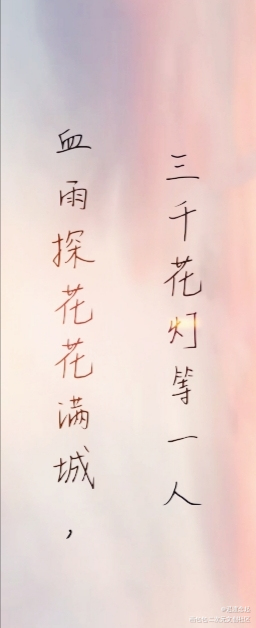 血雨探花花满城，
三千花灯等一人